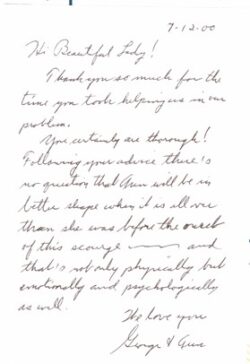 7-12-00
Hi Beautiful Lady!
Thank you so much for the
time you took helping us in our
problem.
You certainly are thorough!
Following your advice there's
no question that Ann will be in
better shape when it is all over
than she was before the onset
of this scourge — and
that's not only physically but
emotionally and psychologically
as well.
We love you
George & Ann